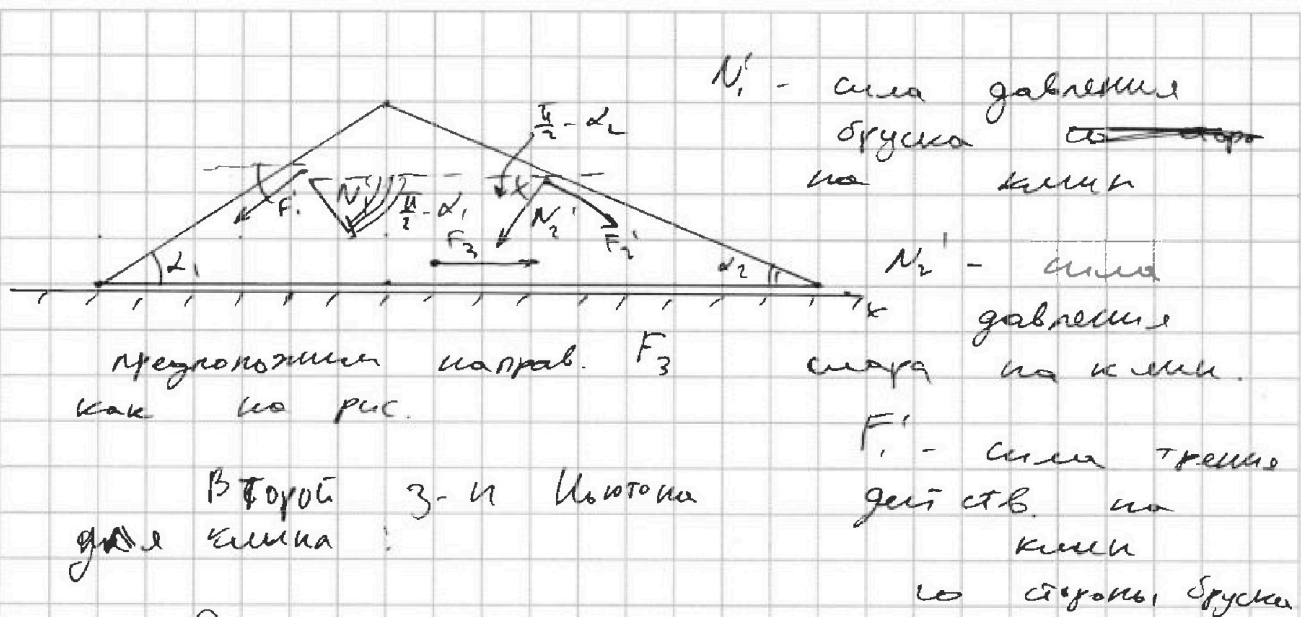 N₁' - сила давления
бруска
на клин
π/2 - α₂
F₁'
N₁'
π/2 - α₁
x
N₂'
F₂'
F₃
α₁
α₂
x
N₂' - сила
давления
шара на клин.
предположим направ. F₃
как на рис.
F₁' - сила трения
действ. на
клин
со стороны бруска
Второй з-н Ньютона
для клина :